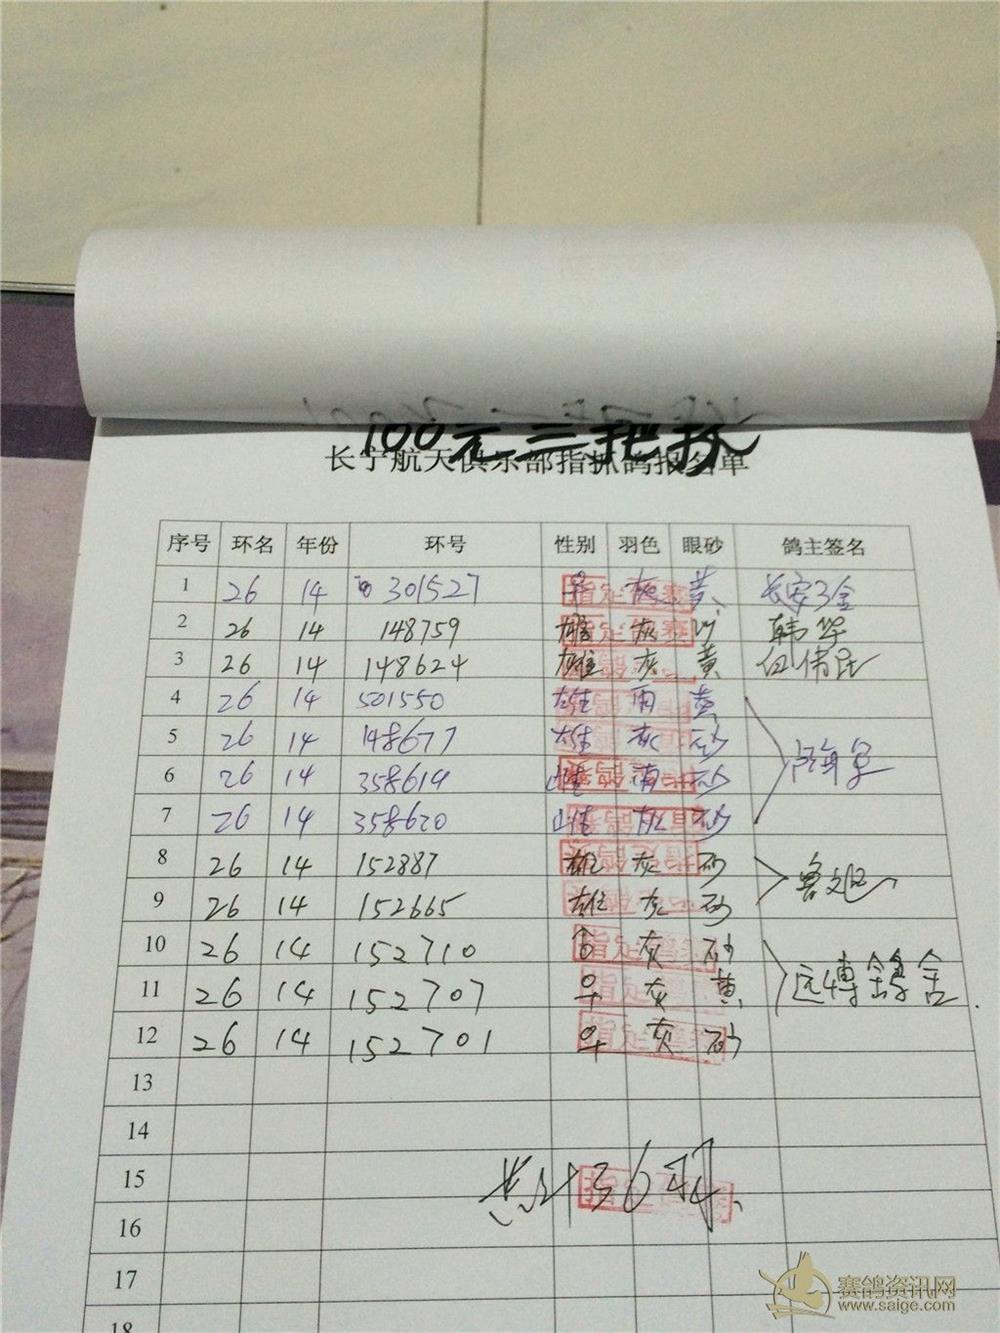 100元三把抓
长宁航天俱乐部指抓鸽报名单
序号 环名 年份 环号 性别 羽色 眼砂 鸽主签名
1 26 14 301527 ♀ 灰 黄
2 26 14 148759 雄 灰 砂 韩华
3 26 14 148624 雄 灰 黄
4 26 14 501550 雄 雨 黄
5 26 14 148677 雄 灰 砂
6 26 14 358619 雌 雨 砂
7 26 14 358620 雌 灰 砂
8 26 14 152887 雄 灰 砂
9 26 14 152665 雄 灰 砂
10 26 14 152710 灰 砂
11 26 14 152707 ♀ 灰 黄 远博鸽舍
12 26 14 152701 ♀ 灰 砂
13
14
15 共计36羽
16
17
18
赛鸽资讯网
www.saige.com